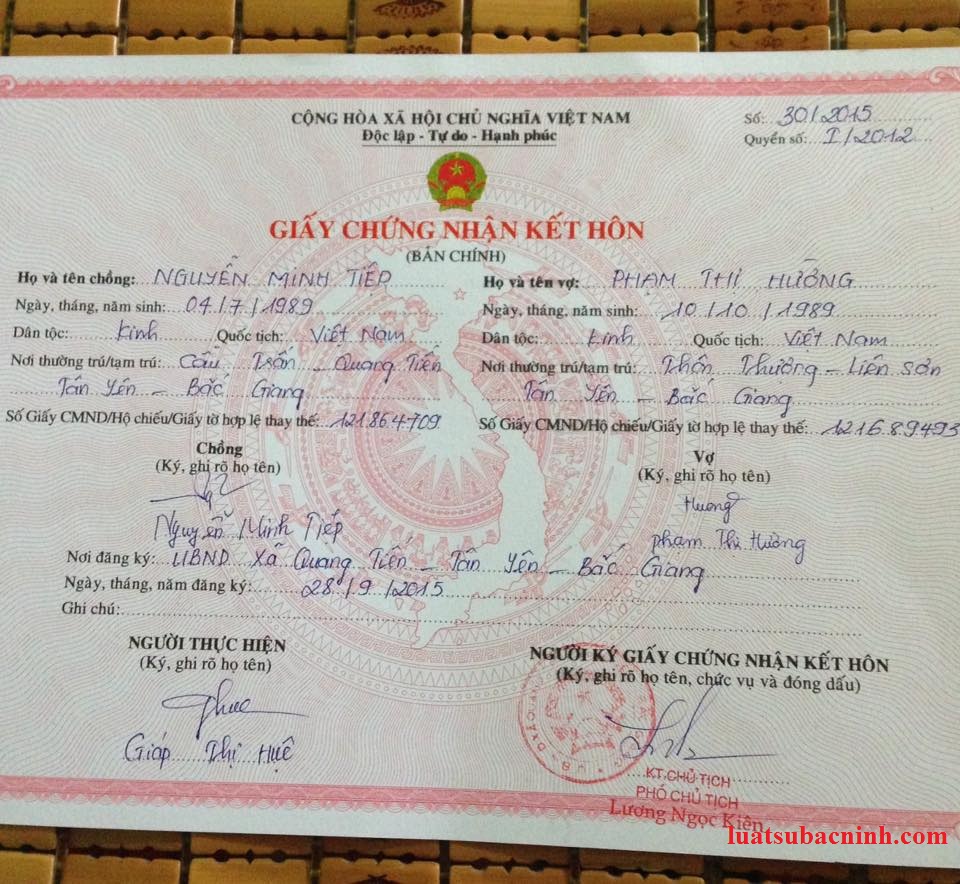 CỘNG HÒA XÃ HỘI CHỦ NGHĨA VIỆT NAM
Độc lập - Tự do - Hạnh phúc
Số: 30/2015
Quyển số: I/2012
GIẤY CHỨNG NHẬN KẾT HÔN
(BẢN CHÍNH)
Họ và tên chồng: NGUYỄN MINH TIỆP
Ngày, tháng, năm sinh: 04/7/1989
Dân tộc: Kinh Quốc tịch: Việt Nam
Nơi thường trú/tạm trú: Cầu Trấn Quang Tiến
Tân Yên – Bắc Giang
Số Giấy CMND/Hộ chiếu/Giấy tờ hợp lệ thay thế: 121864709
Chồng
(Ký, ghi rõ họ tên)
Nguyễn Minh Tiếp
Họ và tên vợ: PHẠM THỊ HƯỜNG
Ngày, tháng, năm sinh: 10/10/1989
Dân tộc: Kinh Quốc tịch: Việt Nam
Nơi thường trú/tạm trú: Thôn Thường – Liên Sơn
Tân Yên – Bắc Giang
Số Giấy CMND/Hộ chiếu/Giấy tờ hợp lệ thay thế: 121689493
Vợ
(Ký, ghi rõ họ tên)
Hương
Phạm Thị Hường
Nơi đăng ký: UBND Xã Quang Tiến – Tân Yên – Bắc Giang
Ngày, tháng, năm đăng ký: 28/9/2015
Ghi chú:
NGƯỜI THỰC HIỆN
(Ký, ghi rõ họ tên)
Giáp Thị Huệ
NGƯỜI KÝ GIẤY CHỨNG NHẬN KẾT HÔN
(Ký, ghi rõ họ tên, chức vụ và đóng dấu)
KT.CHỦ TỊCH
PHÓ CHỦ TỊCH
Lương Ngọc Kiên
luatsubacninh.com